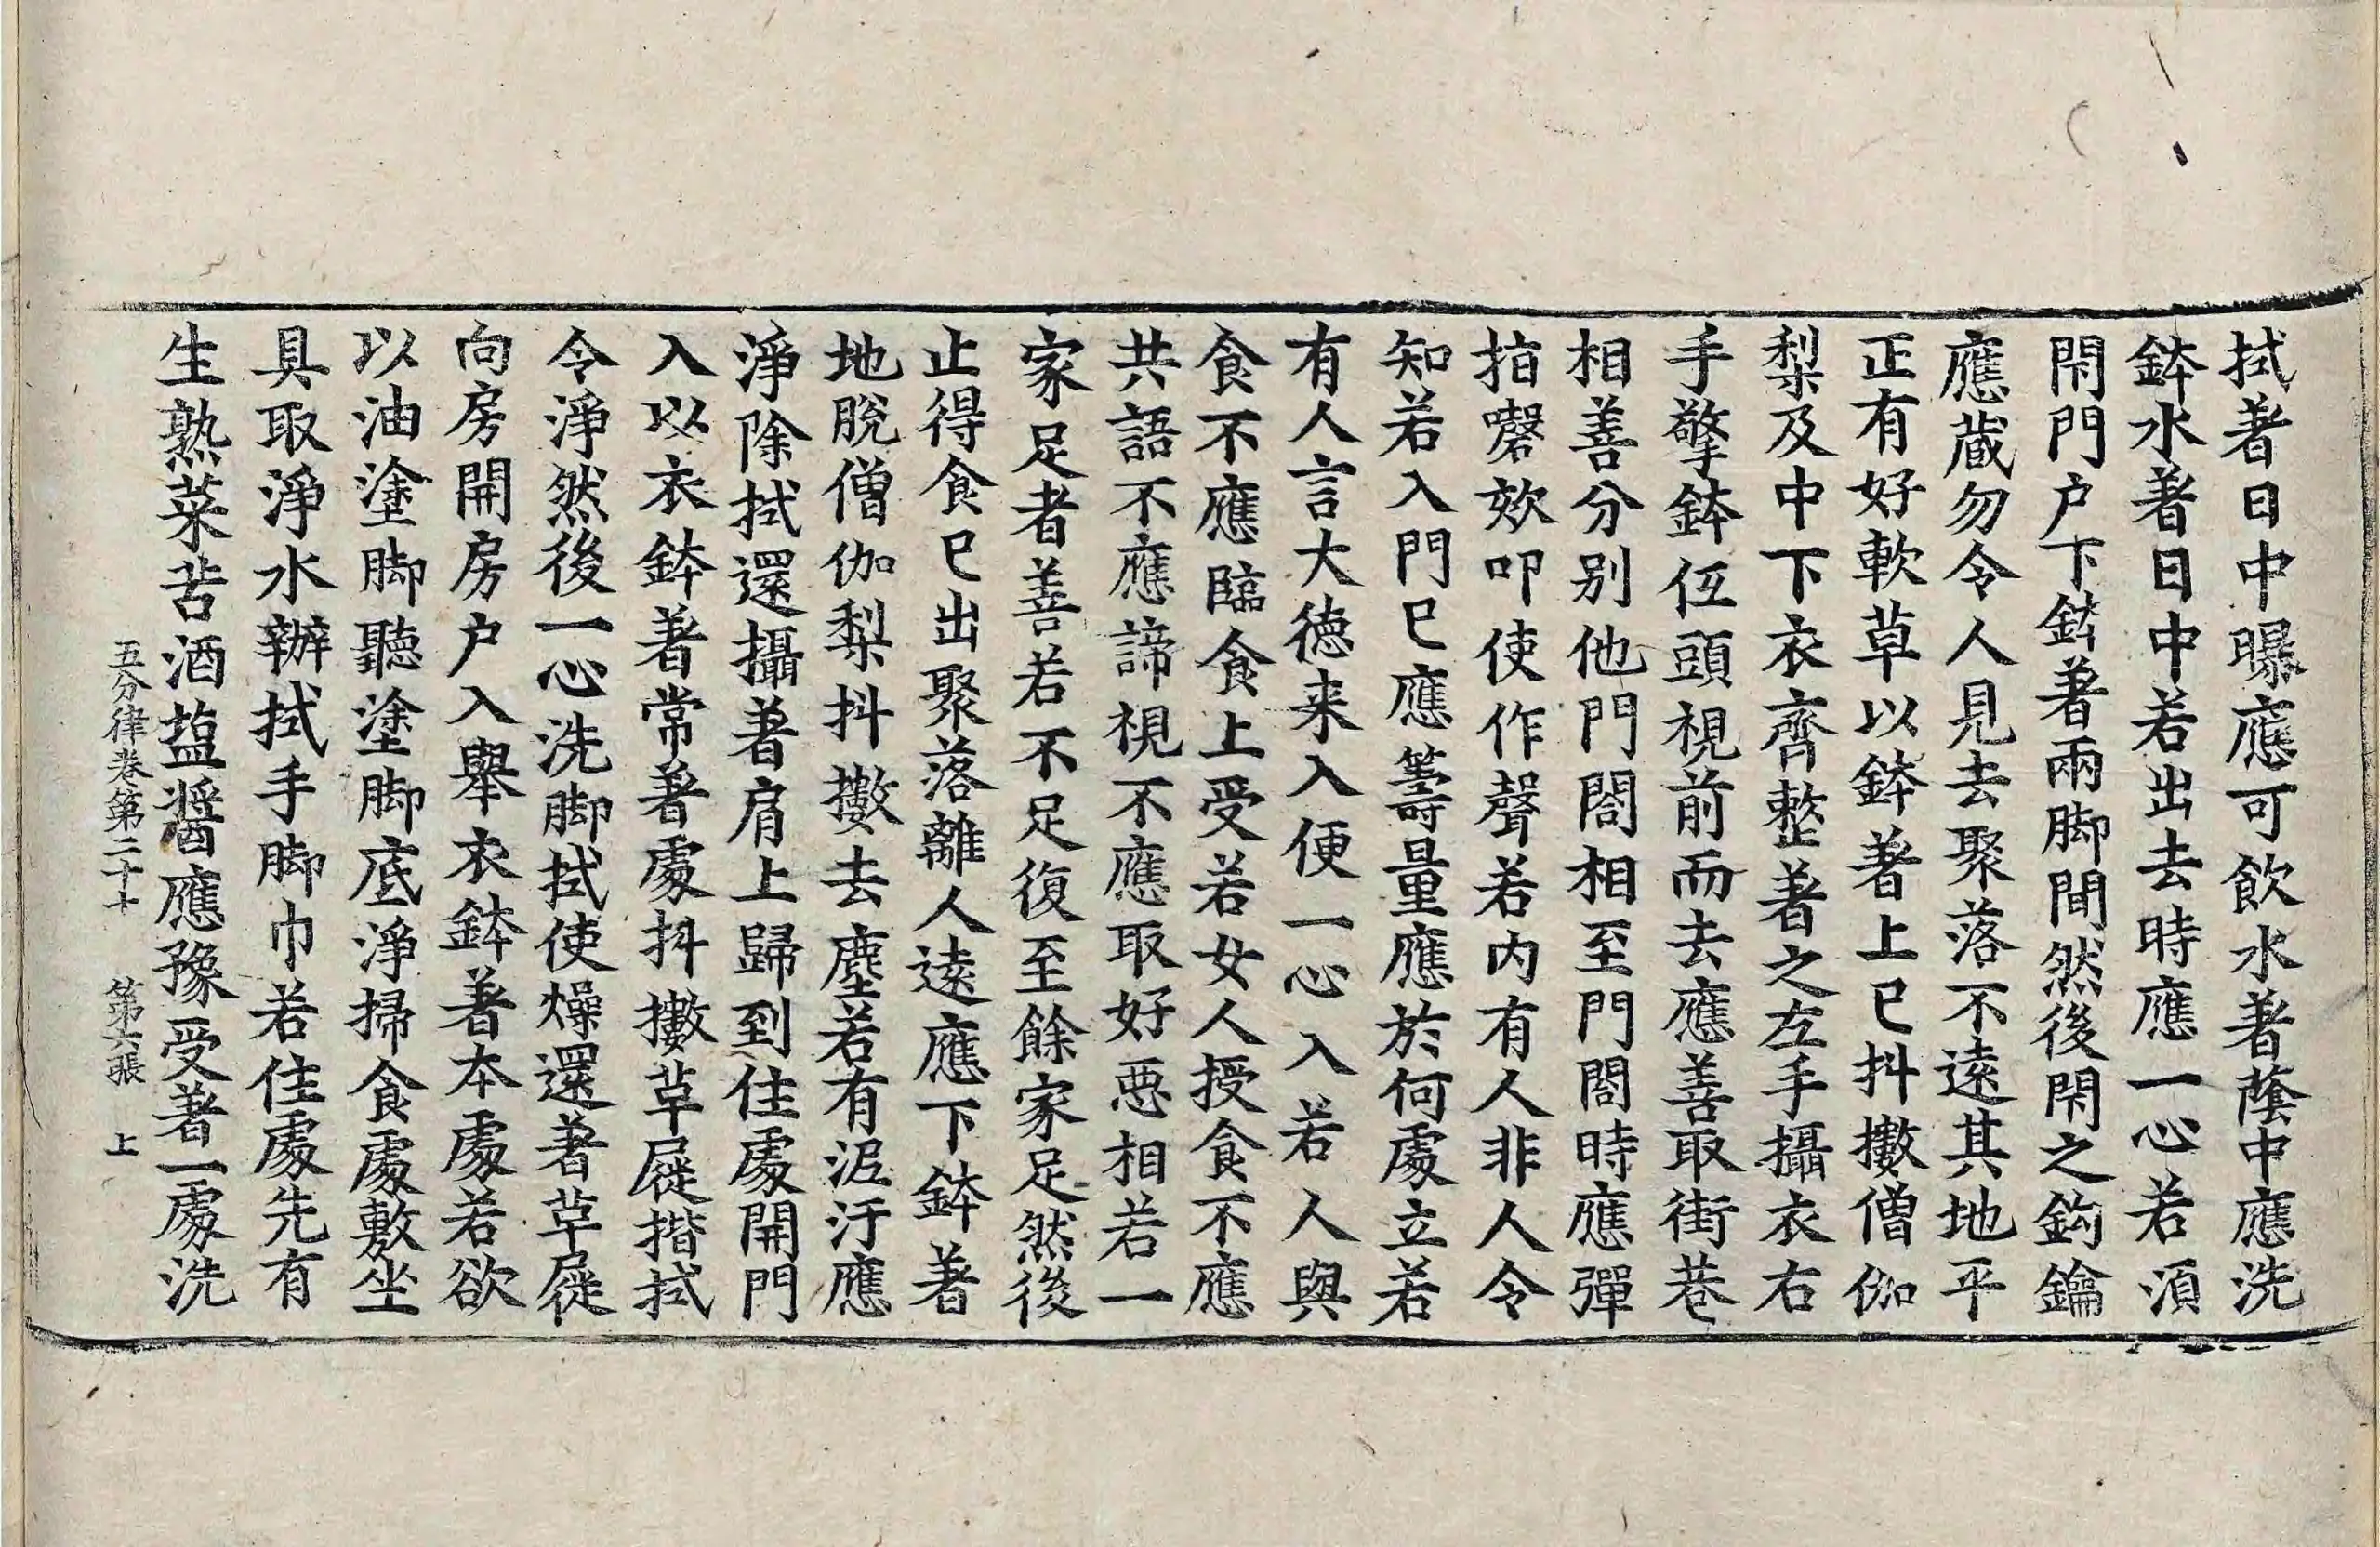 拭著日中曝應可飲水著蔭中應洗
鉢水著日中若出去時應一心若湏
閇門户下鉢著兩脚間然後閇之鈎鑰
應蔵勿令人見去聚落不遠其地平
正有好軟草以鉢著上已抖擻僧伽
梨及中下衣齊整著之左手攝衣右
手擎鉢伍頭視前而去應善取街巷
相善分别他門閤相至門閤時應彈
指謦欬叩使作聲若内有人非人令
知若入門已應籌量應於何處立若
有人言大德来入便一心入若人與
食不應臨食上受若女人授食不應
共語不應諦視不應取好惡相若一
家足者善若不足復至餘家足然後
止得食已出聚落離人遠應下鉢著
地脫僧伽梨抖擻去塵若有泥汙應
淨除拭還攝著肩上歸到住處開門
入以衣鉢著常著處抖擻草屣揩拭
令淨然後一心洗脚拭使燥還著草屣
向房開房户入舉衣鉢著本處若欲
以油塗脚聽塗脚底淨掃食處敷坐
具取淨水辦拭手脚巾若住處先有
生熟菜苦酒塩醬應豫受著一處洗
五分律卷第二十七 第六張 上